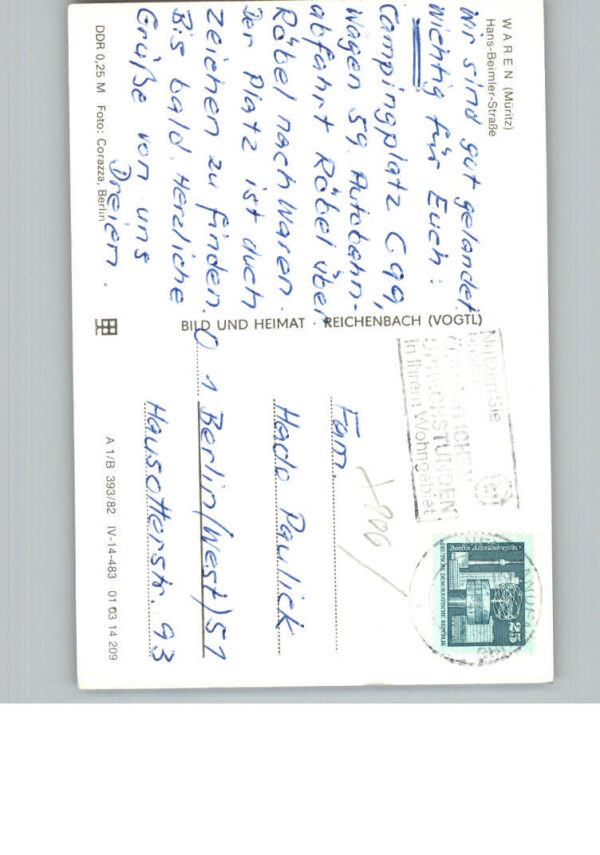 WAREN (Müritz)
Hans-Beimler-Straße
Wir sind gut gelandet,
wichtig für Euch:
Campingplatz C99,
Wagen 59. Autobahn-
abfahrt Röbel über
Röbel nach Waren.
Der Platz ist duch
Zeichen zu finden.
Bis bald. Herzliche
Grüße von uns
Dreien.
DDR 0,25 M Foto: Corazza, Berlin
BILD UND HEIMAT · REICHENBACH (VOGTL)
Nutzen Sie
SPRECHSTUNDEN
in Ihrem Wohngebiet
Berlin, Alexanderplatz
25
DEUTSCHE DEMOKRATISCHE REPUBLIK
Fam.
Hado Paulick
O 1 Berlin (West) 51
Hausotterstr. 93
A 1/B 393/82 IV-14-483 01 03 14 209